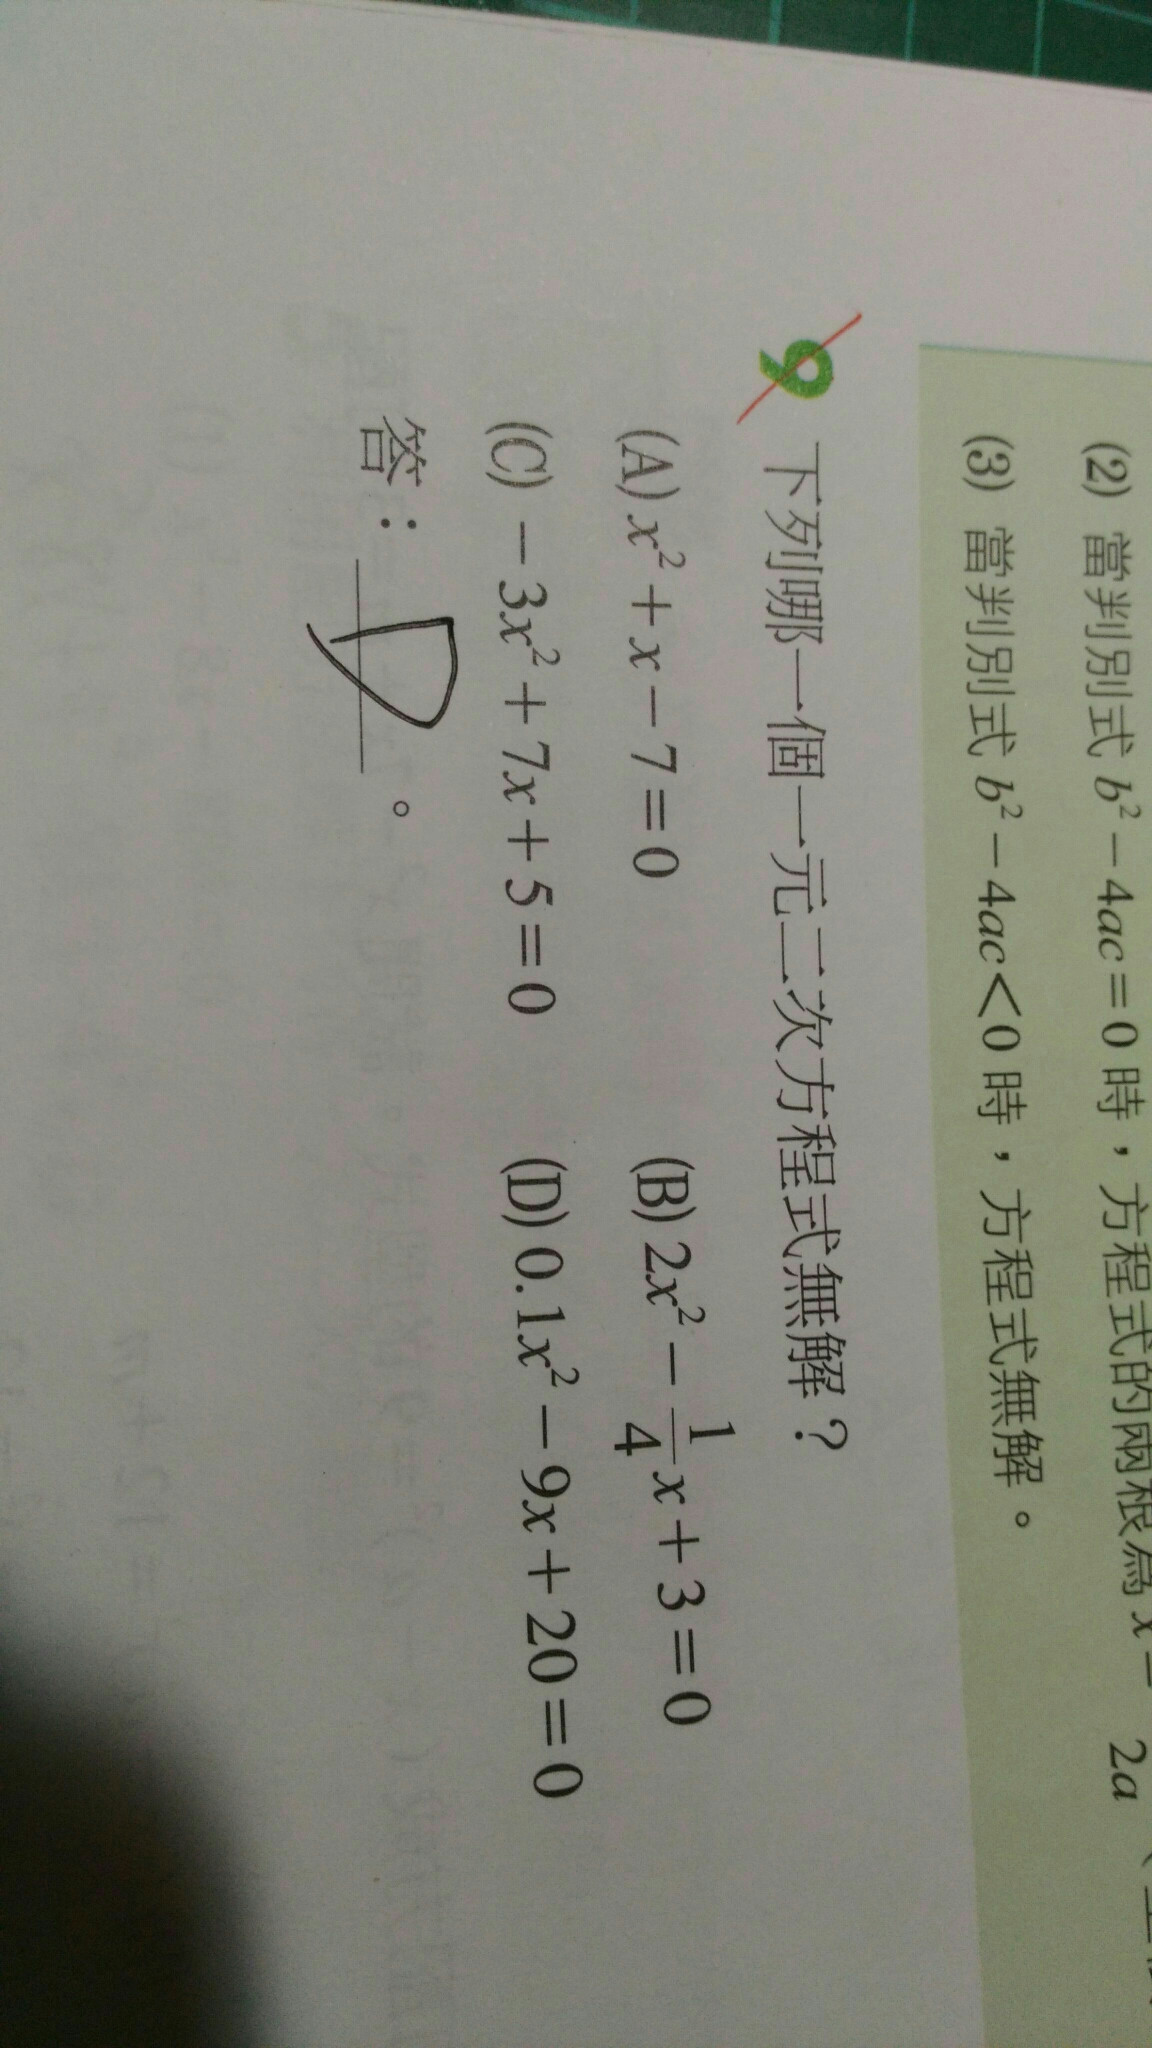 (2) 當判別式 b² − 4ac = 0 時，方程式的兩根為 x = 2a
(3) 當判別式 b² − 4ac < 0 時，方程式無解。
9 下列哪一個一元二次方程式無解？
(A) x² + x − 7 = 0 (B) 2x² − 1/4 x + 3 = 0
(C) − 3x² + 7x + 5 = 0 (D) 0.1x² − 9x + 20 = 0
答：D。